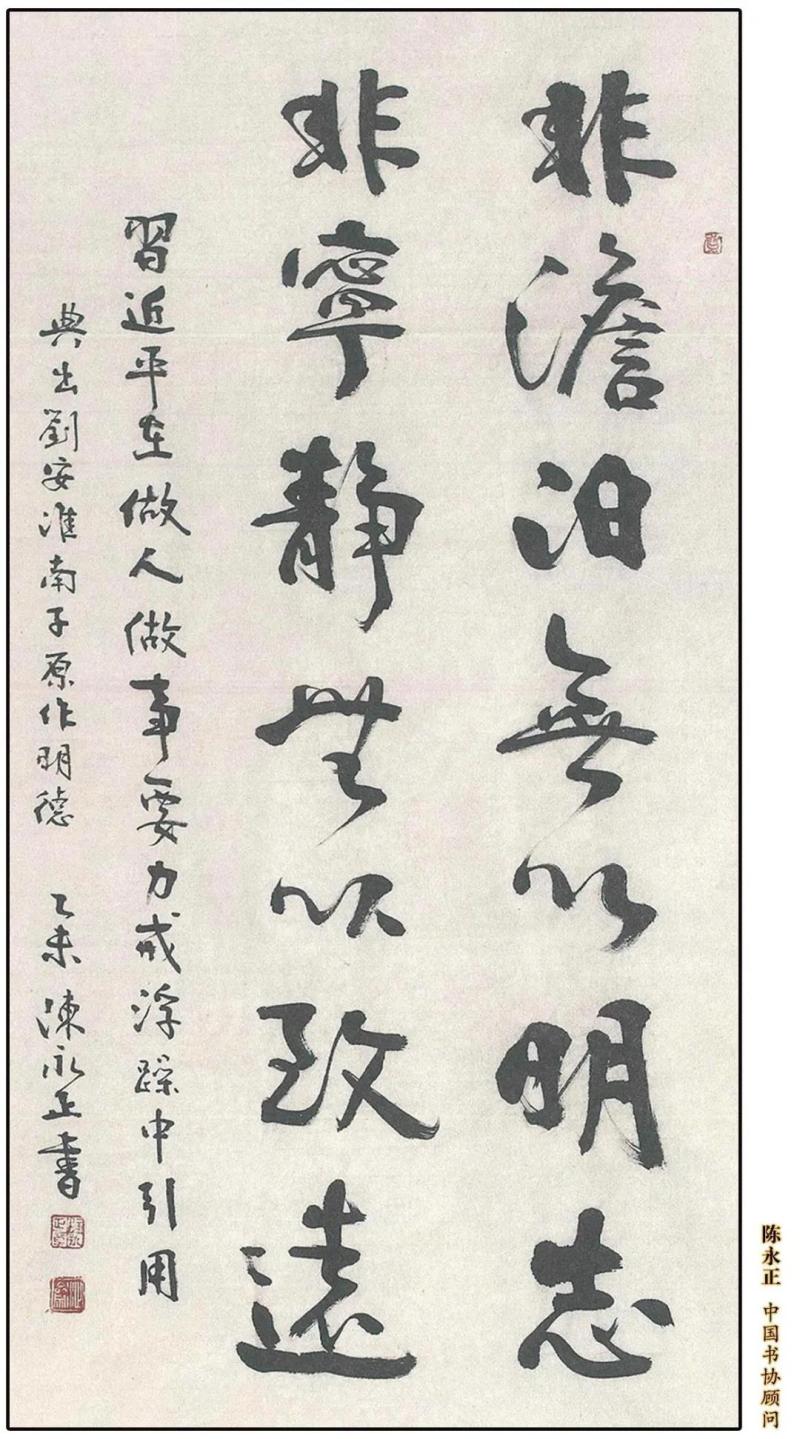 非澹泊無以明志
非寧靜無以致遠
習近平在做人做事要力戒浮躁中引用
典出劉安淮南子原作明德 乙未 陳永正書
陈永正 中国书协顾问